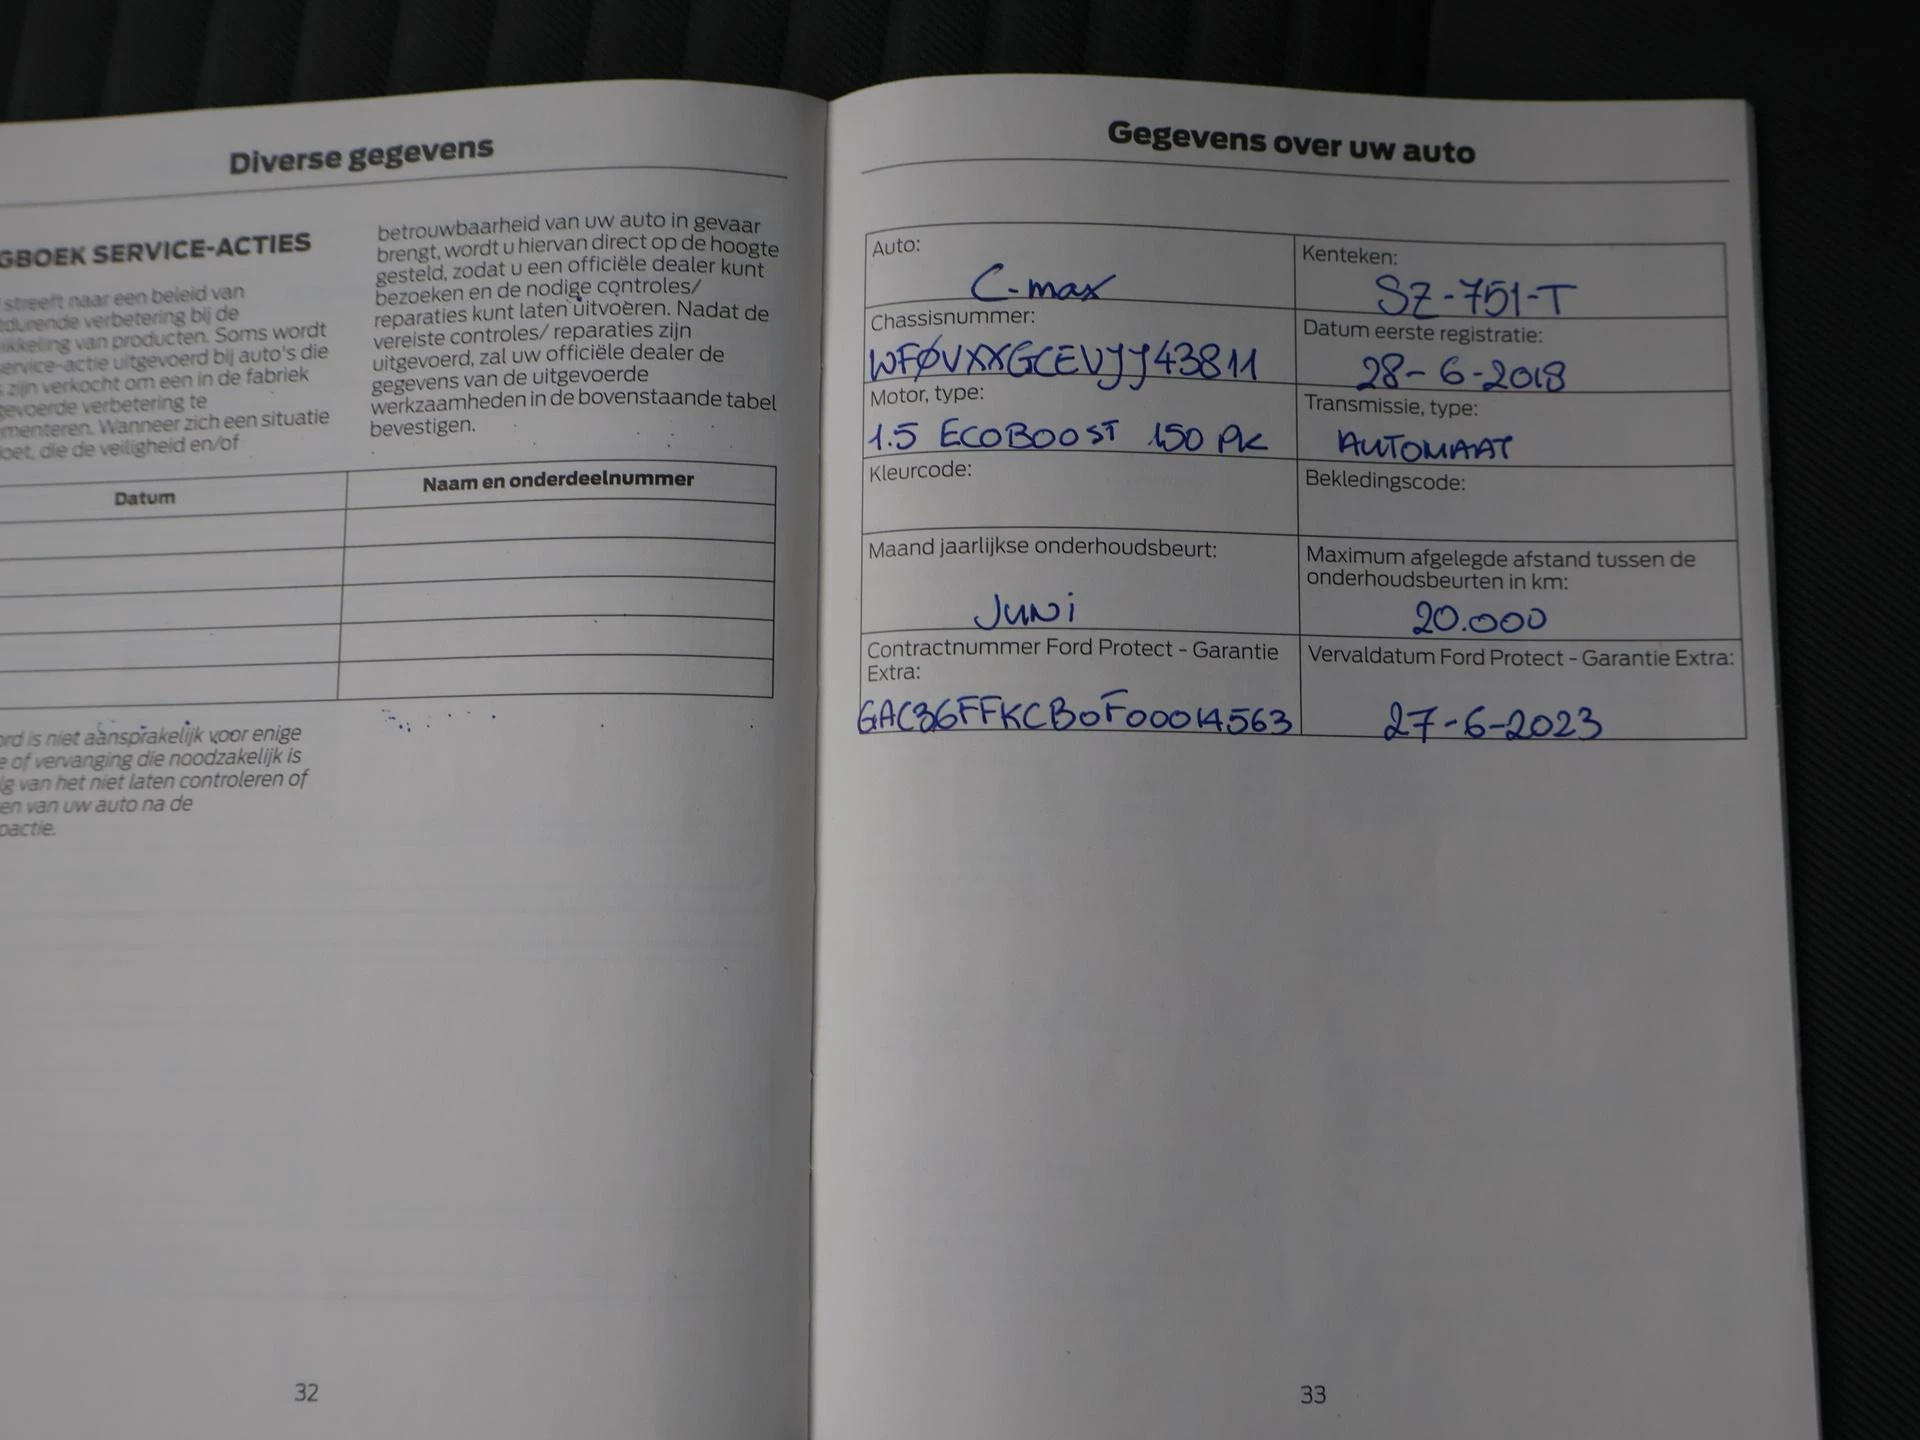 Diverse gegevens
GBOEK SERVICE-ACTIES
streeft naar een beleid van
durende verbetering bij de
ikkeling van producten. Soms wordt
service-actie uitgevoerd bij auto's die
zijn verkocht om een in de fabriek
gevoerde verbetering te
menteren. Wanneer zich een situatie
oet, die de veiligheid en/of
betrouwbaarheid van uw auto in gevaar
brengt, wordt u hiervan direct op de hoogte
gesteld, zodat u een officiële dealer kunt
bezoeken en de nodige controles/
reparaties kunt laten uitvoeren. Nadat de
vereiste controles/ reparaties zijn
uitgevoerd, zal uw officiële dealer de
gegevens van de uitgevoerde
werkzaamheden in de bovenstaande tabel
bevestigen.
Datum
Naam en onderdeelnummer
ord is niet aansprakelijk voor enige
e of vervanging die noodzakelijk is
lg van het niet laten controleren of
en van uw auto na de
pactie.
32
Gegevens over uw auto
Auto:
C-max
Kenteken:
SZ-751-T
Chassisnummer:
WFØVXXGCEVJJ43811
Datum eerste registratie:
28-6-2018
Motor, type:
1.5 ECOBOOST 150 PK
Transmissie, type:
AUTOMAAT
Kleurcode:
Bekledingscode:
Maand jaarlijkse onderhoudsbeurt:
JUNi
Maximum afgelegde afstand tussen de
onderhoudsbeurten in km:
20.000
Contractnummer Ford Protect - Garantie
Extra:
GAC36FFKCB0F00014563
Vervaldatum Ford Protect - Garantie Extra:
27-6-2023
33